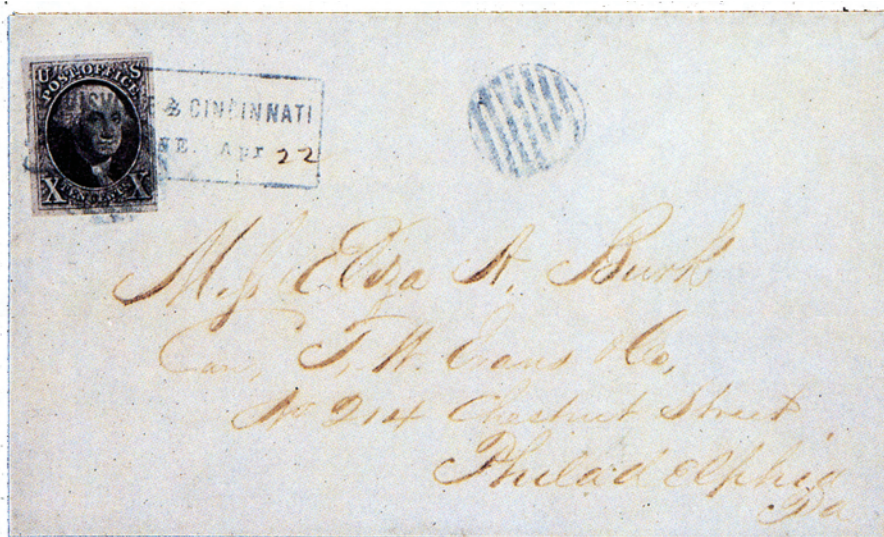 U S
POST OFFICE
& CINCINNATI
Apr 22
X X
Miss Eliza A. Burk
Care, T. W. Evans & Co,
No 214 Chestnut Street
Philadelphia
Pa